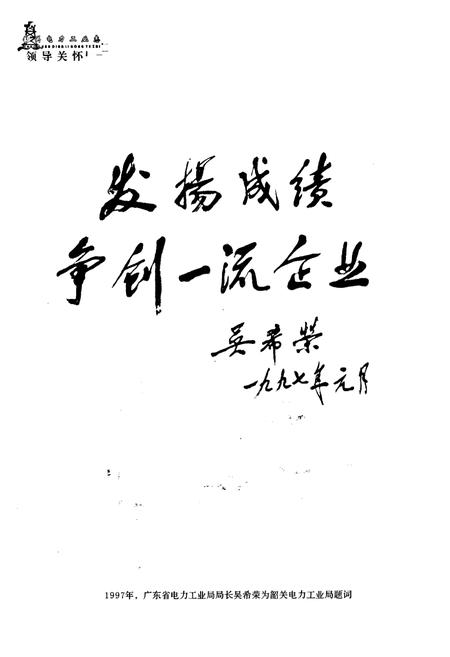 电力工业志
领导关怀
发揚成绩
争创一流企业
吴希荣
一九九七年元月
1997年，广东省电力工业局局长吴希荣为韶关电力工业局题词